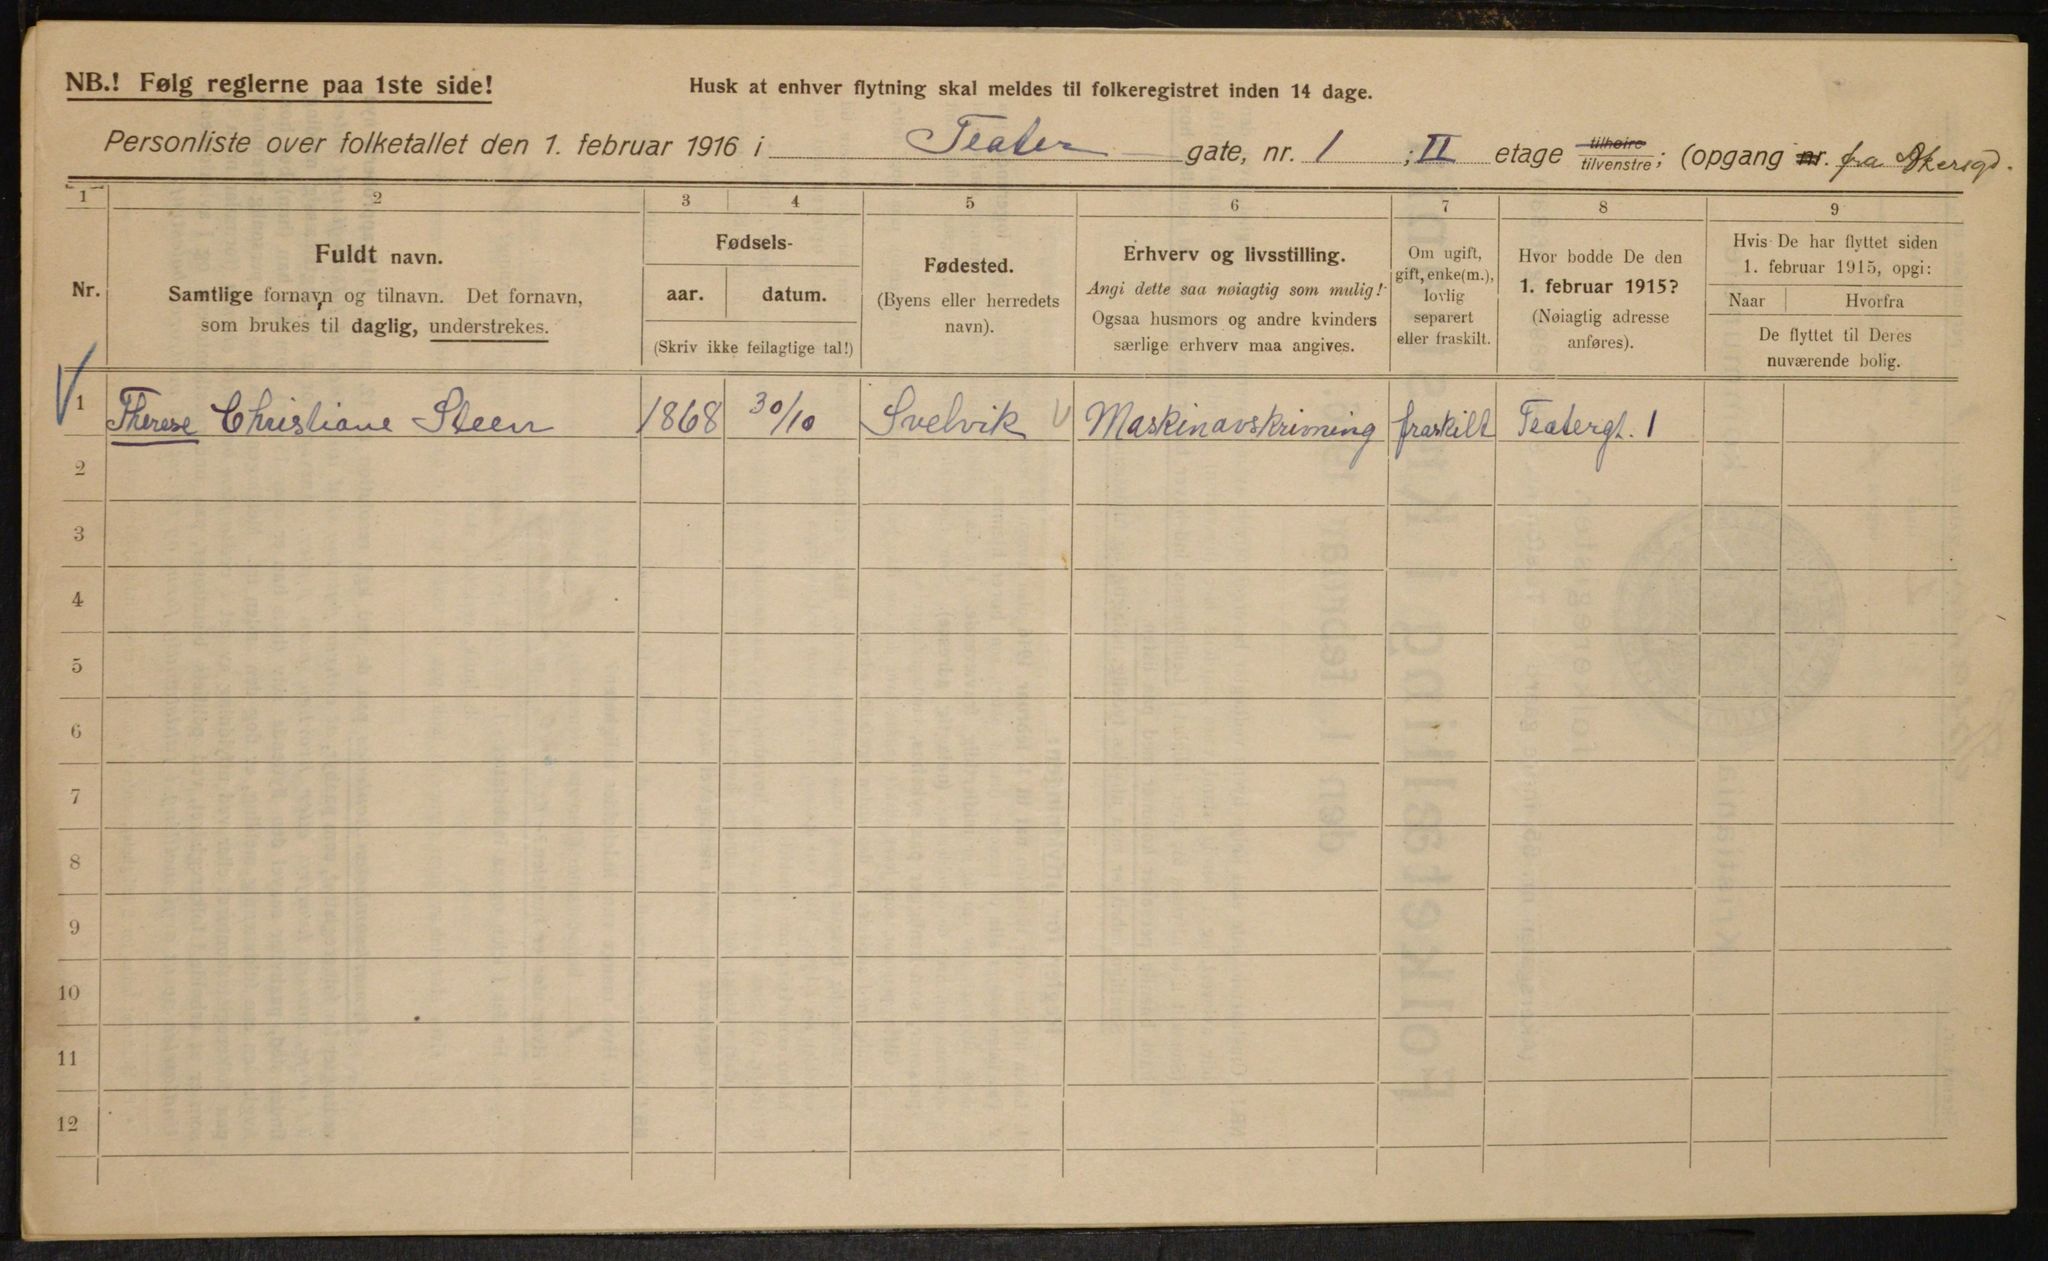 NB.! Følg reglerne paa 1ste side!
Husk at enhver flytning skal meldes til folkeregistret inden 14 dage.
Personliste over folketallet den 1. februar 1916 i Teater gate, nr. 1 ; II etage tilhøire tilvenstre; (opgang nr. fra Akersgd.
1 2 3 4 5 6 7 8 9
Nr.
Fuldt navn.
Samtlige fornavn og tilnavn. Det fornavn,
som brukes til daglig, understrekes.
Fødsels-
aar. datum.
(Skriv ikke feilagtige tal!)
Fødested.
(Byens eller herredets
navn).
Erhverv og livsstilling.
Angi dette saa nøiagtig som mulig!
Ogsaa husmors og andre kvinders
særlige erhverv maa angives.
Om ugift,
gift, enke(m.),
lovlig
separert
eller fraskilt.
Hvor bodde De den
1. februar 1915?
(Nøiagtig adresse
anføres).
Hvis De har flyttet siden
1. februar 1915, opgi:
Naar Hvorfra
De flyttet til Deres
nuværende bolig.
1 Therese Christiane Steen 1868 30/10 Svelvik Maskinavskrivning fraskilt Teatergt. 1
2
3
4
5
6
7
8
9
10
11
12